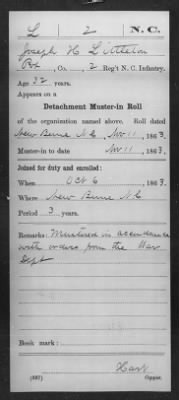 L 2 N. C.
Joseph H Littleton
Pvt, Co. , 2 Reg't N. C. Infantry.
Age 32 years.
Appears on a
Detachment Muster-in Roll
of the organization named above. Roll dated
New Berne N.C. Nov 11, 1863.
Muster-in to date Nov 11, 1863.
Joined for duty and enrolled:
When Oct 6, 1863.
Where New Berne N.C.
Period 3 years.
Remarks: Mustered in accordance
with orders from the War
Dept
Book mark:
Hart
(337) Copyist.